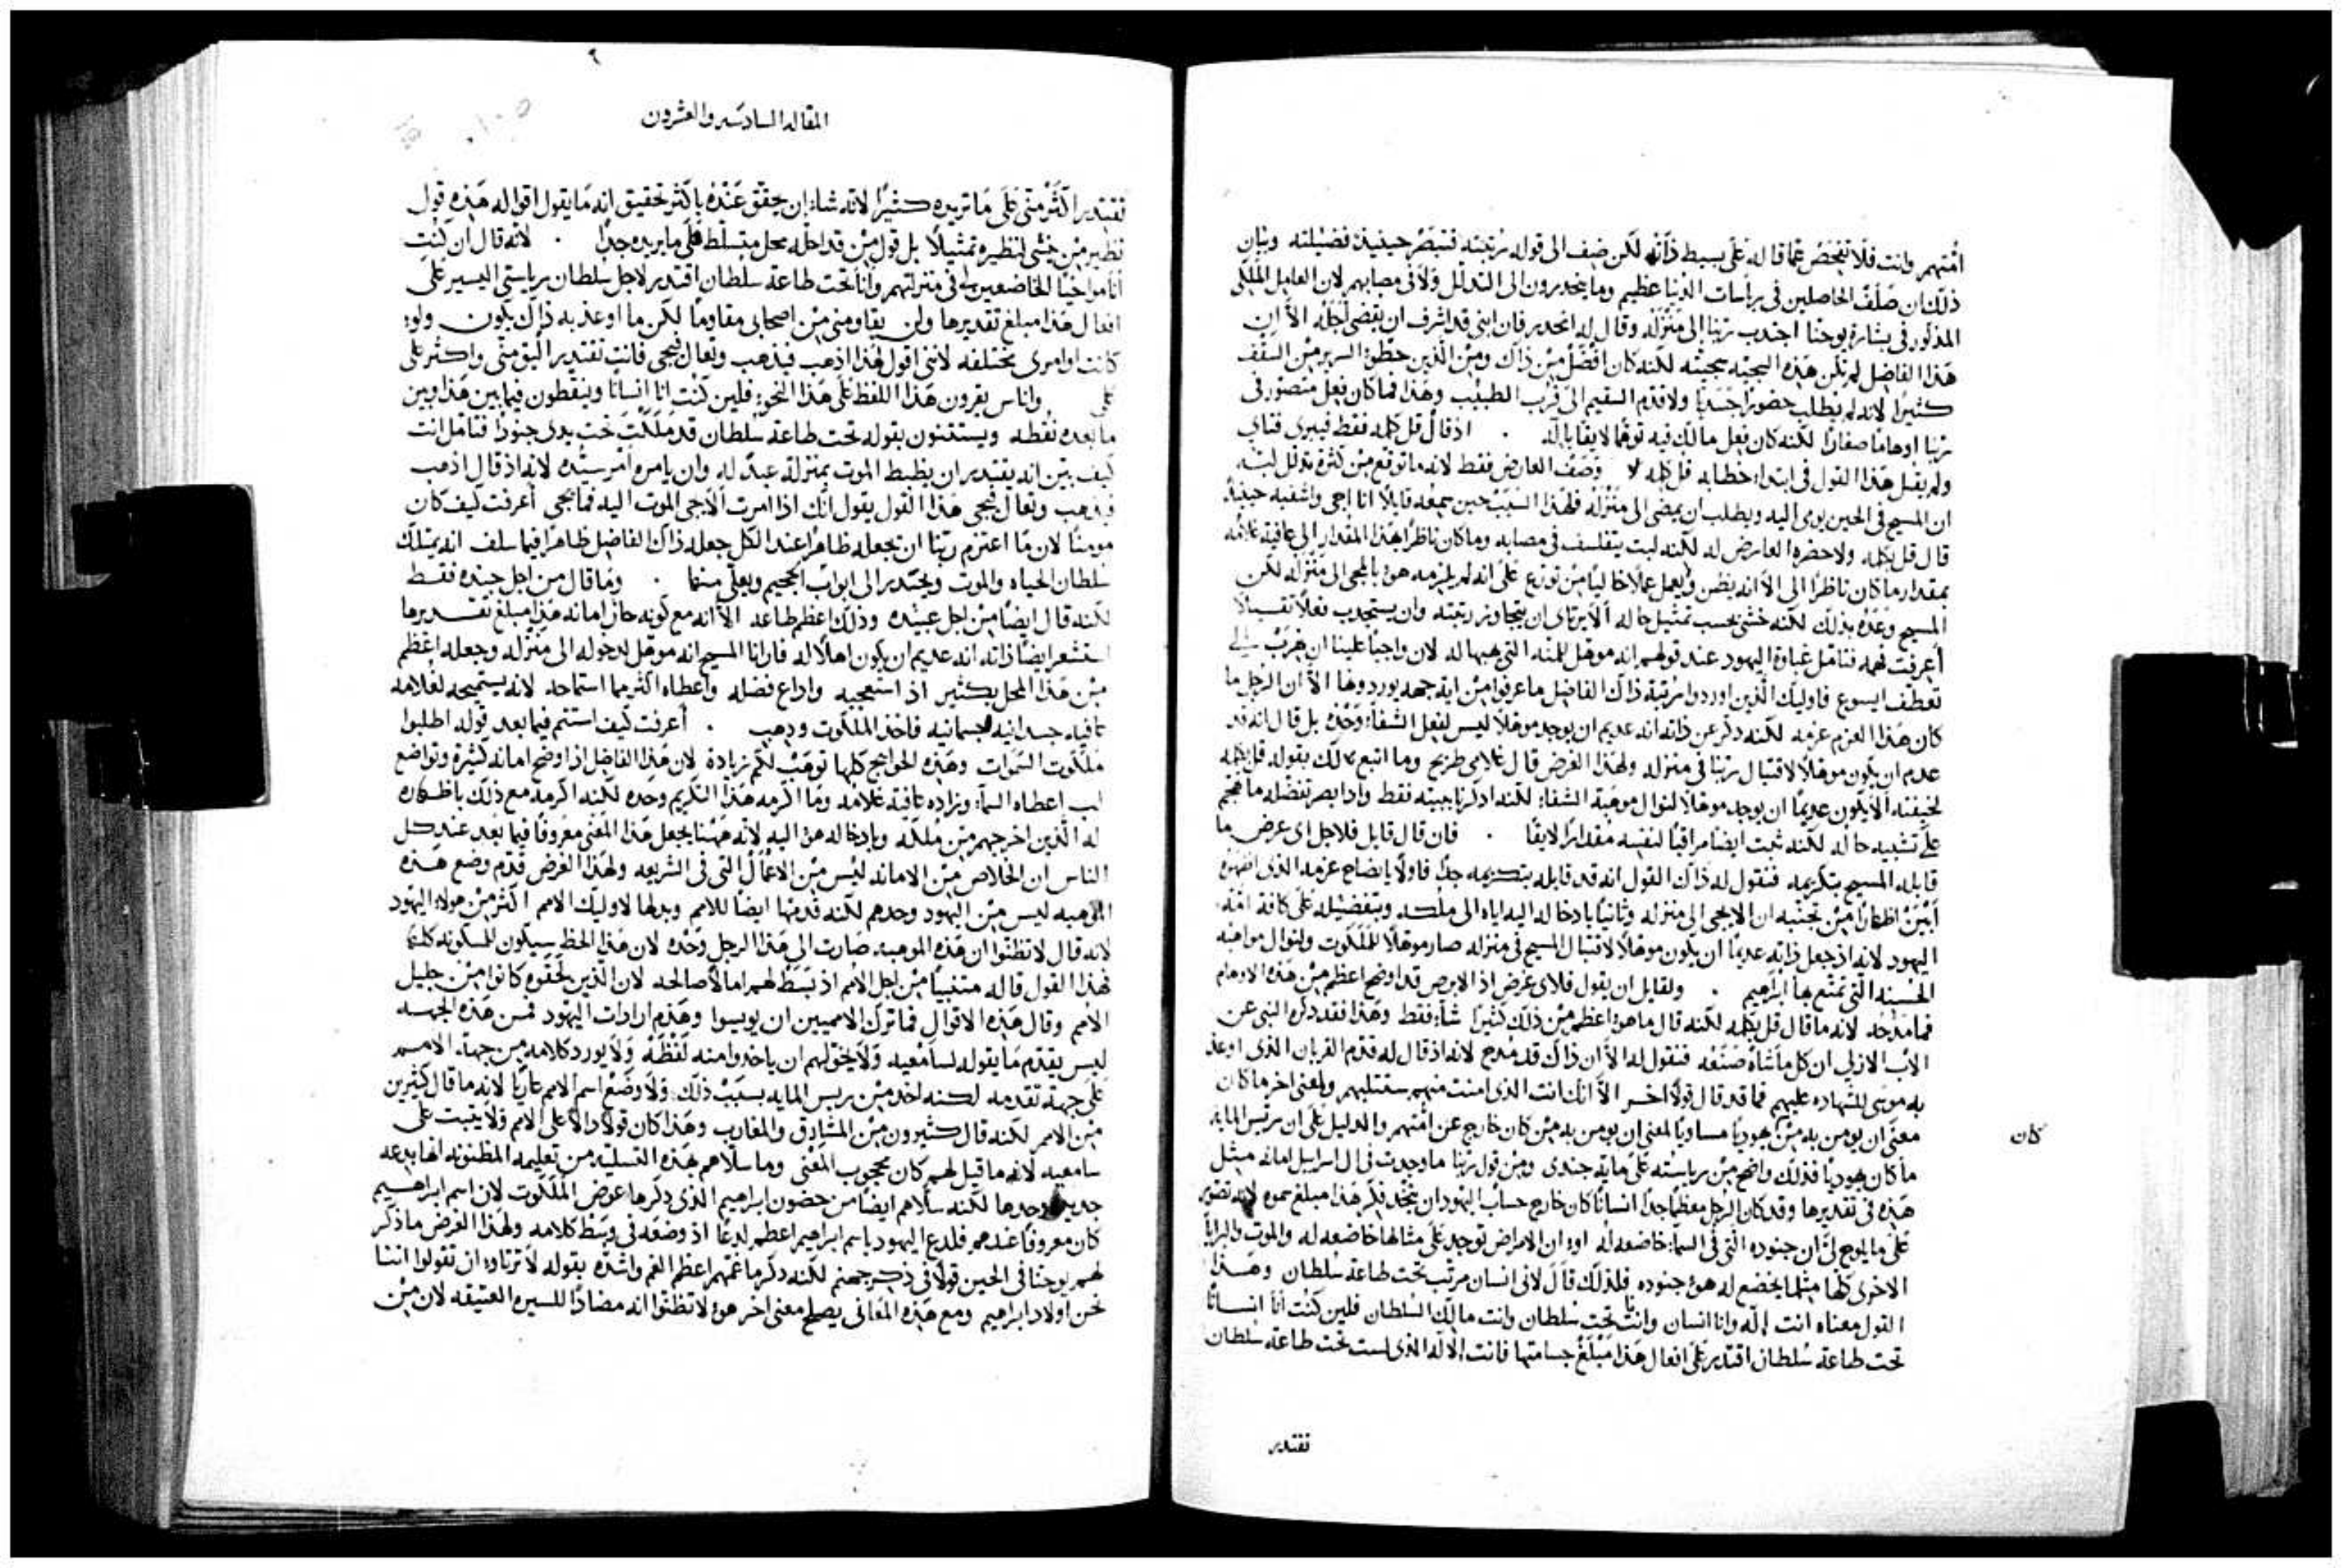 امتهم وانت فلا تفحص عما قاله على بسيط ذاته لكن ضف الى قوله رتبته فتبصر حينيذ فضيلته وبيان
ذلك ان صلف الحاصلين في رياسات الدنيا عظيم وما ينحدرون الى التذلل ولا في مصايبهم لان العامل الملكي
المذكور في بشارة يوحنا اجتذب ربنا الى منزله وقال له انحدر فان ابني قد اشرف ان يقضي اجله الا ان
هذا الفاضل لم تكن هذه السجيه سجيته لكنه كان افضل من ذاك ومن الذين حطوا السرير من السقف
كثيرا لانه لم يطلب حضورا جسديا ولا قدم السقيم الى قرب الطبيب وهذا فما كان فعل متصور في
ربنا اوهاما صغارا لكنه كان فعل مالك فيه توهما لايقا بالله . اذ قال قل كلمه فقط فيبرى فتاي
ولم يقبل هذا القول في ابتداء خطابه قل كلمه لا وصف العارض فقط لانه ما توقع من كثرة تذلل لبه
ان المسيح في الحين يومى اليه ويطلب ان يمضي الى منزله فلهذا السبب حين سمعه قايلا انا اجي واشفيه حينيذ
قال قل كلمه ولا حضره العارض له لكنه لبث يتفلسف في مصابه وما كان ناظرا هذا المقدار الى عافية غلامه
بمقدار ما كان ناظرا الى الا انه يظن ويعمل عملا خاليا من تورع على انه لم يلزمه هو بالمجي الى منزله لكن
المسيح وعده بذلك لكنه خشي بحسب تمثيل حاله الا يرتاي ان يتجاوز رتبته وان يستجذب فعلا ثقيلا
اعرفت فهمه فتامل غباوة اليهود عند قولهم انه موهل للمنه التي يهبها له لان واجبا علينا ان نهرب الى
تعطف ايسوع فاوليك الذين اوردوا مرتبة ذاك الفاضل ما عرفوا من اية جهه يوردونها الا ان الرجل ما
كان هذا العزم عزمه لكنه ذكر عن ذاته انه عديم ان يوجد موهلا ليس لفعل الشفا وحده بل قال انه قد
عدم ان يكون موهلا لاقتبال ربنا في منزله ولهذا الغرض قال غلامي طريح وما اتبع ذلك بقوله قل كلمه
لخيفته الا يكون عديما ان يوجد موهلا لنوال موهبة الشفا لكنه اذكرنا بيته فقط واذا بصر تفضله ما هجم
على تشبيه حاله لكنه ثبت ايضا مراقبا لنفسه مقدارا لايقا . فان قال قايل فلاجل اى عرض ما
قابله المسيح بتكريمه فنقول له ذاك القول انه قد قابله بتكريمه جدا فاولا بايضاح عزمه الذي اظهره
ابين اظهارا من تجنبه ان لا يجي الى منزله وثانيا بادخاله اليه اياه الى ملكه وبتفضيله على كافة امة
اليهود لانه اذ جعل ذاته عديما ان يكون موهلا لاقتبال المسيح في منزله صار موهلا للملكوت ولنوال مواهبه
الحسنه التي تمتع بها ابراهيم . ولقايل ان يقول فلاى غرض اذ الابرص قد اوضح اعظم من هذه الاوهام
فما مدحه لانه ما قال قل بكلمه لكنه قال ما هو اعظم من ذلك كثيرا شا فقط وهذا فقد ذكره النبي عن
الاب الازلي ان كل ما شاه صنعه فنقول له الا ان ذاك قد مدح لانه اذ قال له قدم القربان الذي اوعد
به موسى للشهاده عليهم فما قد قال قولا اخر الا انك انت الذي امنت منهم ستقتلهم ولمعنى اخر ما كان
معنى ان يومن به من يهوديا مساويا لمعنى ان يومن به من كان خارج عن امتهم والدليل على ان رييس المايه
كان
ما كان يهوديا فذلك واضح من رياسته على مايه جندي ومن قول ربنا ما وجدت في ال اسراييل امانه مثل
هذه في تقديرها وقد كان الرجل معظما جدا انسانا كان خارج حساب اليهود ان ينجد فكر هذا مبلغ سموه لانه تصور
على ما يلوح لي ان جنوده التي في السما خاضعه له او ان الامراض توجد على مثالها خاضعه له والموت والبرايا
الاخرى كلها مثلما يخضع له هو جنوده فلذلك قال لاني انسان مرتب تحت طاعة سلطان وهذا
القول معناه انت اله وانا انسان وانا تحت سلطان وانت مالك السلطان فلين كنت انا انسانا
تحت طاعة سلطان اقتدر على افعال هذا مبلغ جسامتها فانت الاله الذي لست تحت طاعة سلطان
تقتدر
المقاله السادسه والعشرون
تقتدر اكثر مني على ما تريده كثيرا لانه شا ان يحقق عنده باكثر تحقيق انه ما يقول اقواله هذه قول
نظير من خشى لنظيره تمثيلا بل قول من قد احله محل متسلط على ما يريده جدا . لانه قال ان كنت
انا مواخيا الخاضعين لي في منزلتهم وانا تحت طاعة سلطان اقتدر لاجل سلطان رياستي اليسير على
افعال هذا مبلغ تقديرها ولن يقاومني من اصحابي مقاوما لكن ما اوعز به ذاك يكون ولو
كانت اوامري مختلفه لانني اقول لهذا اذهب فيذهب وتعال فيجي فانت تقتدر اليق مني واكثر على
كل واناس يقرون هذا اللفظ على هذا النحو فلين كنت انا انسانا وينقطون فيما بين هذا وبين
ما بعده نقطه ويستثنون بقوله تحت طاعة سلطان قد ملكت تحت يدي جنودا فتامل انت
كيف بين انه يقتدر ان يضبط الموت بمنزلة عبد له وان يامره امر سيده لانه اذ قال اذهب
فيذهب وتعال فيجي هذا القول يقول انك اذا امرت الا يجي الموت اليه فما يجي اعرفت كيف كان
مومنا لان ما اعتزم ربنا ان يجعله ظاهرا عند الكل جعله ذاك الفاضل ظاهرا فيما سلف انه يمتلك
سلطان الحياه والموت ويحتدر الى ابواب الجحيم ويعلي منها . وما قال من اجل جنده فقط
لكنه قال ايضا من اجل عبيده وذلك اعظم طاعه الا انه مع كونه حاز امانه هذا مبلغ تقديرها
استشعر ايضا ذاته انه عديم ان يكون اهلا له فارانا المسيح انه موهل لدخوله الى منزله وجعله اعظم
من هذا المحل بكثير اذ استعجبه واذاع فضله واعطاه اكثر مما استماحه لانه يستميحه لغلامه
عافيه جسدانيه جسمانيه فاخذ الملكوت وذهب . اعرفت كيف استتم فيما بعد قوله اطلبوا
ملكوت السموات وهذه الحوايج كلها توهب لكم زيادة لان هذا الفاضل اذ اوضح امانه كثيرة وتواضع
لب اعطاه السما وزاده عافية غلامه وما اكرمه هذا التكريم وحده لكنه اكرمه مع ذلك باظهاره
له الذين اخرجهم من ملكه وبادخاله هو اليه لانه ههنا يجعل هذا المعنى معروفا فيما بعد عند كل
الناس ان الخلاص من الامانه ليس من الاعمال التي في الشريعه ولهذا الغرض قدم وضع هذه
الموهبه ليس من اليهود وحدهم لكنه قدمها ايضا للامم وبذلها لاوليك الامم اكثر من هولاء اليهود
لانه قال لا تظنوا ان هذه الموهبه صارت الى هذا الرجل وحده لان هذا الحظ سيكون للمسكونه كلها
فهذا القول قاله متنبيا من اجل الامم اذ بسط لهم امالا صالحه لان الذين لحقوه كانوا من جليل
الامم وقال هذه الاقوال فما ترك الامميين ان يويسوا وهدم ارادات اليهود فمن هذه الجهه
ليس يقدم ما يقوله لسامعيه ولا يخولهم ان ياخذوا منه لفظه ولا يورد كلامه من جهة الامم
على جهة تقدمه لكنه اخذ من رييس المايه بسبب ذلك ولا وضع اسم الامم عاريا لانه ما قال كثيرين
من الامم لكنه قال كثيرون من المشارق والمغارب وهذا كان قولا دالا على الامم ولا يثبت على
سامعيه لانه ما قيل لهم كان محجوب المعنى وما سلاهم بهذه التسليه من تعليمه المظنونه انها بدعه
جديده وحدها لكنه سلاهم ايضا من حضون ابراهيم الذي ذكرها عوض الملكوت لان اسم ابراهيم
كان معروفا عندهم فلدع اليهود باسم ابراهيم اعظم لدغا اذ وضعه في وسط كلامه ولهذا الغرض ما ذكر
لهم يوحنا في الحين قولا في ذكر جهنم لكنه ذكر ما غمهم اعظم الغم واشده بقوله لا ترتاوا ان تقولوا اننا
نحن اولاد ابراهيم ومع هذه المعاني يصلح معنى اخر هو لا تظنوا انه مضادا للسيره العتيقه لان من